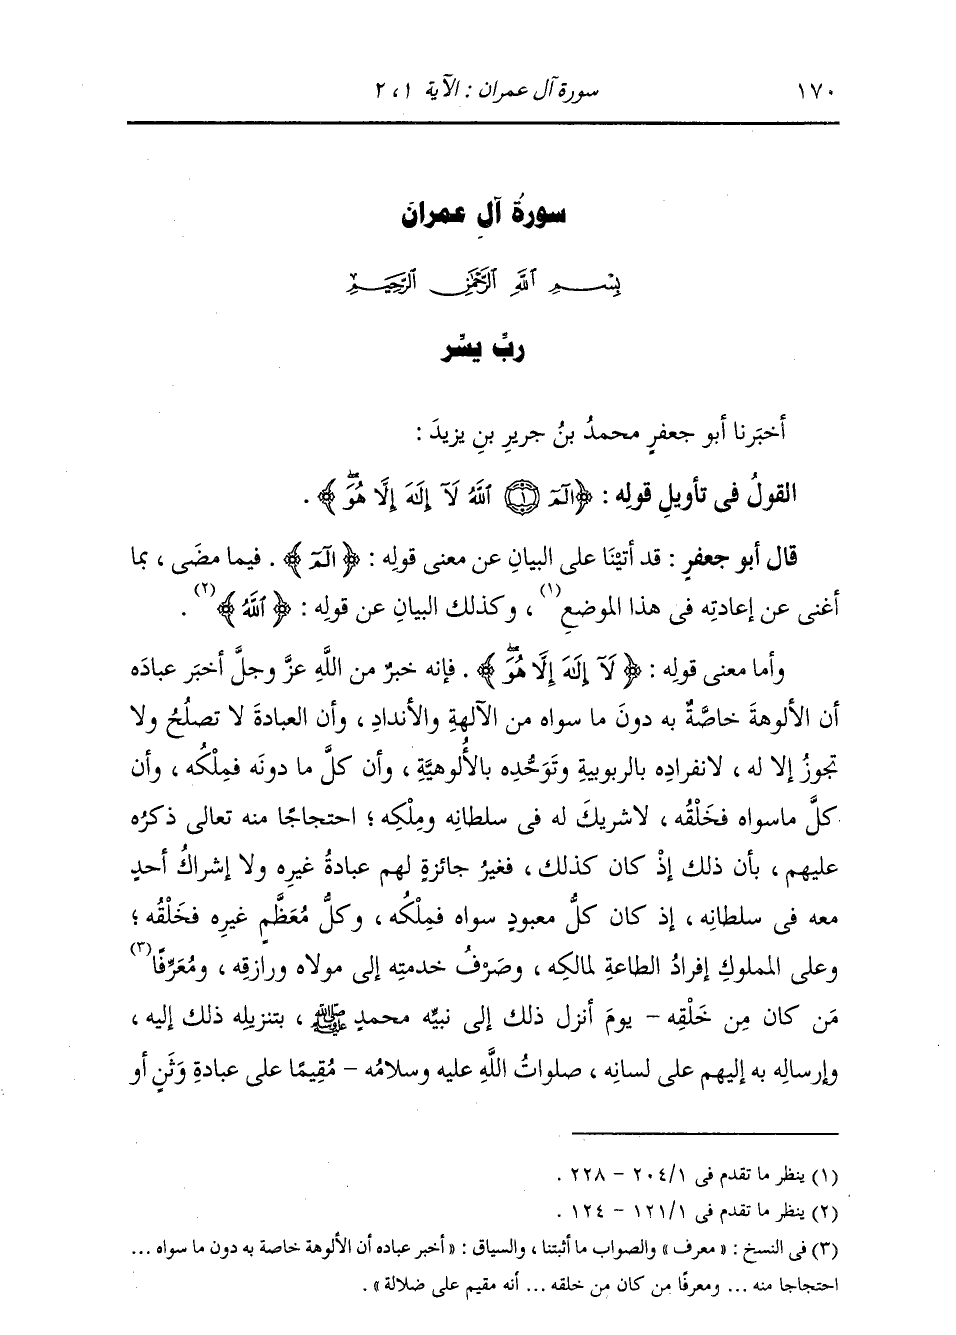 ١٧٠
سورة آل عمران : الآية ١ ، ٢
سورةُ آلِ عمرانَ
بِسْمِ ٱللَّهِ ٱلرَّحْمَٰنِ ٱلرَّحِيمِ
ربِّ يسِّر
أخبَرنا أبو جعفرٍ محمدُ بنُ جريرِ بنِ يزيدَ :
القولُ فى تأويلِ قولِه : ﴿ الٓمٓ ۝١ ٱللَّهُ لَآ إِلَٰهَ إِلَّا هُوَۖ ﴾ .
قال أبو جعفرٍ : قد أتيْنَا على البيانِ عن معنى قولِه : ﴿ الٓمٓ ﴾ . فيما مضَى ، بما
أغنى عن إعادتِه فى هذا الموضعِ(١) ، وكذلك البيان عن قولِه : ﴿ ٱللَّهُ ﴾(٢) .
وأما معنى قولِه : ﴿ لَآ إِلَٰهَ إِلَّا هُوَۖ ﴾ . فإنه خبرٌ من اللَّهِ عزَّ وجلَّ أخبَر عبادَه
أن الألوهةَ خاصَّةٌ به دونَ ما سواه من الآلهةِ والأندادِ ، وأن العبادةَ لا تصلُحُ ولا
تجوزُ إلا له ، لانفرادِه بالربوبيةِ وتَوَحُّدِه بالأُلوهيَّةِ ، وأن كلَّ ما دونَه فمِلْكُه ، وأن
كلَّ ماسواه فخَلْقُه ، لاشريكَ له فى سلطانِه ومِلْكِه ؛ احتجاجًا منه تعالى ذكرُه
عليهم ، بأن ذلك إذْ كان كذلك ، فغيرُ جائزةٍ لهم عبادةُ غيرِه ولا إشراكُ أحدٍ
معه فى سلطانِه ، إذ كان كلُّ معبودٍ سواه فمِلْكُه ، وكلُّ مُعَظَّمٍ غيرِه فخَلْقُه ؛
وعلى المملوكِ إفرادُ الطاعةِ لمالكِه ، وصَرْفُ خدمتِه إلى مولاه ورازقِه ، ومُعَرِّفًا(٣)
مَن كان مِن خَلْقِه – يومَ أنزل ذلك إلى نبيِّه محمدٍ ﷺ ، بتنزيلِه ذلك إليه ،
وإرسالِه به إليهم على لسانِه ، صلواتُ اللَّهِ عليه وسلامُه – مُقِيمًا على عبادةِ وَثَنٍ أو
(١) ينظر ما تقدم فى ٢٠٤/١ – ٢٢٨ .
(٢) ينظر ما تقدم فى ١٢١/١ – ١٢٤ .
(٣) فى النسخ : « معرف » والصواب ما أثبتنا ، والسياق : « أخبر عباده أن الألوهة خاصة به دون ما سواه ...
احتجاجا منه ... ومعرفًا من كان من خلقه ... أنه مقيم على ضلالة » .